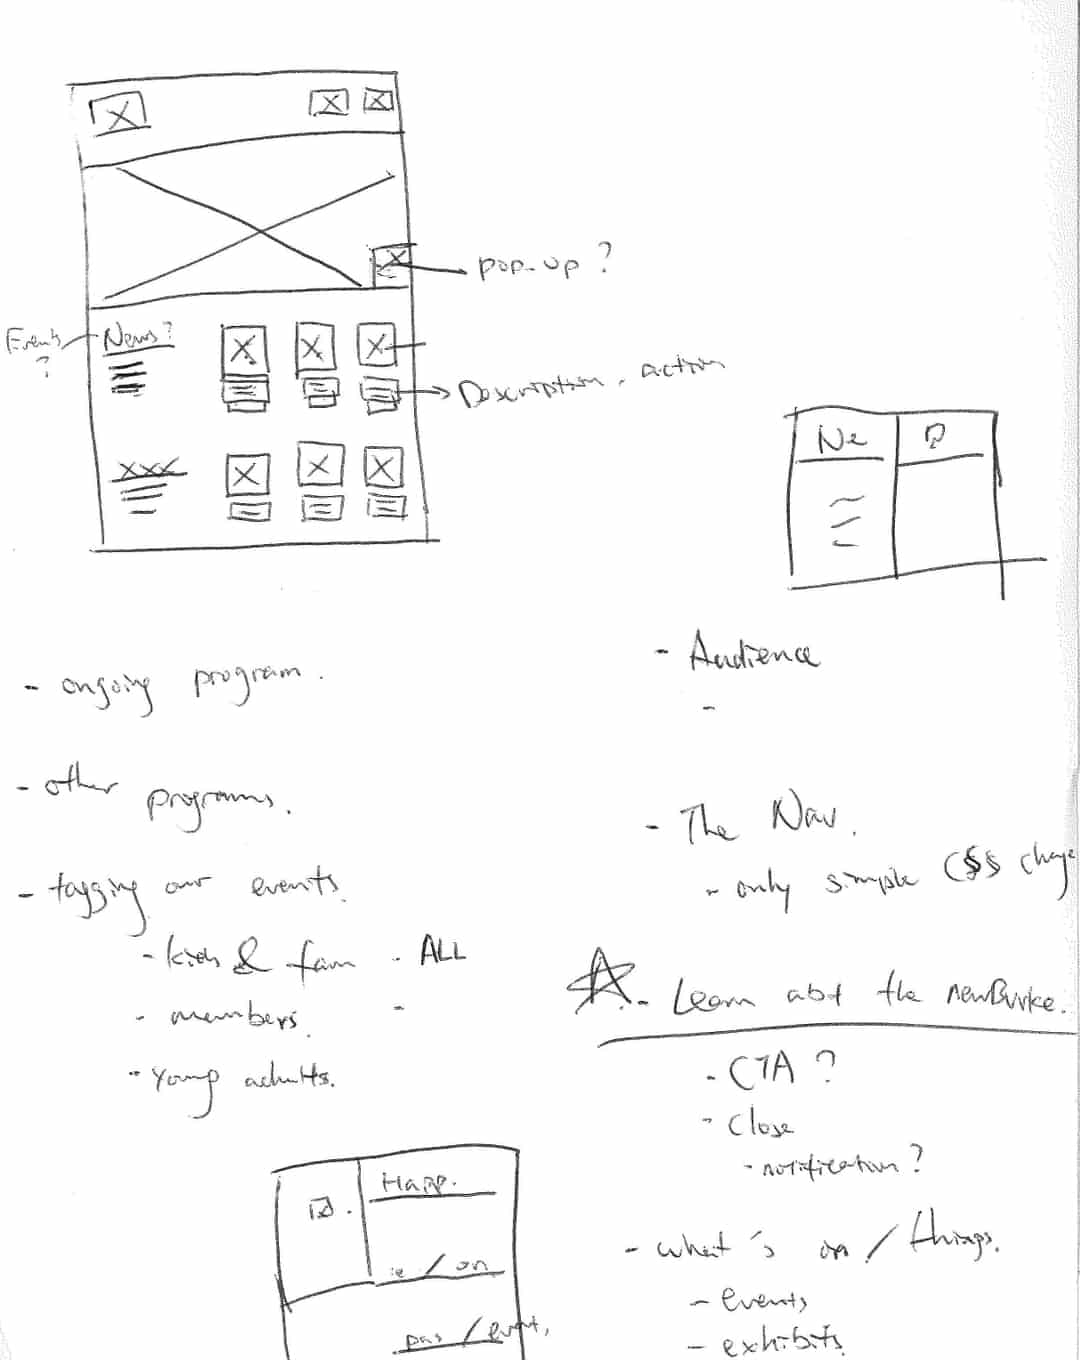 pop-up ?
Events
?
News?
Description, action
XXX
Ne
- ongoing program.
- other programs.
- tagging our events.
- kids & fam
- members.
- young adults.
- ALL
-
- Audience
-
- The Nav.
- only simple CSS change
- Learn abt the newBurke.
- CTA ?
- Close
- notification ?
- what's on / things.
- events
- exhibits.
Happ.
/ on
/ event,